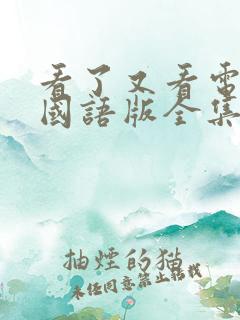 看了又看電
國語版全集
抽煙的猫
未经同意禁止转载